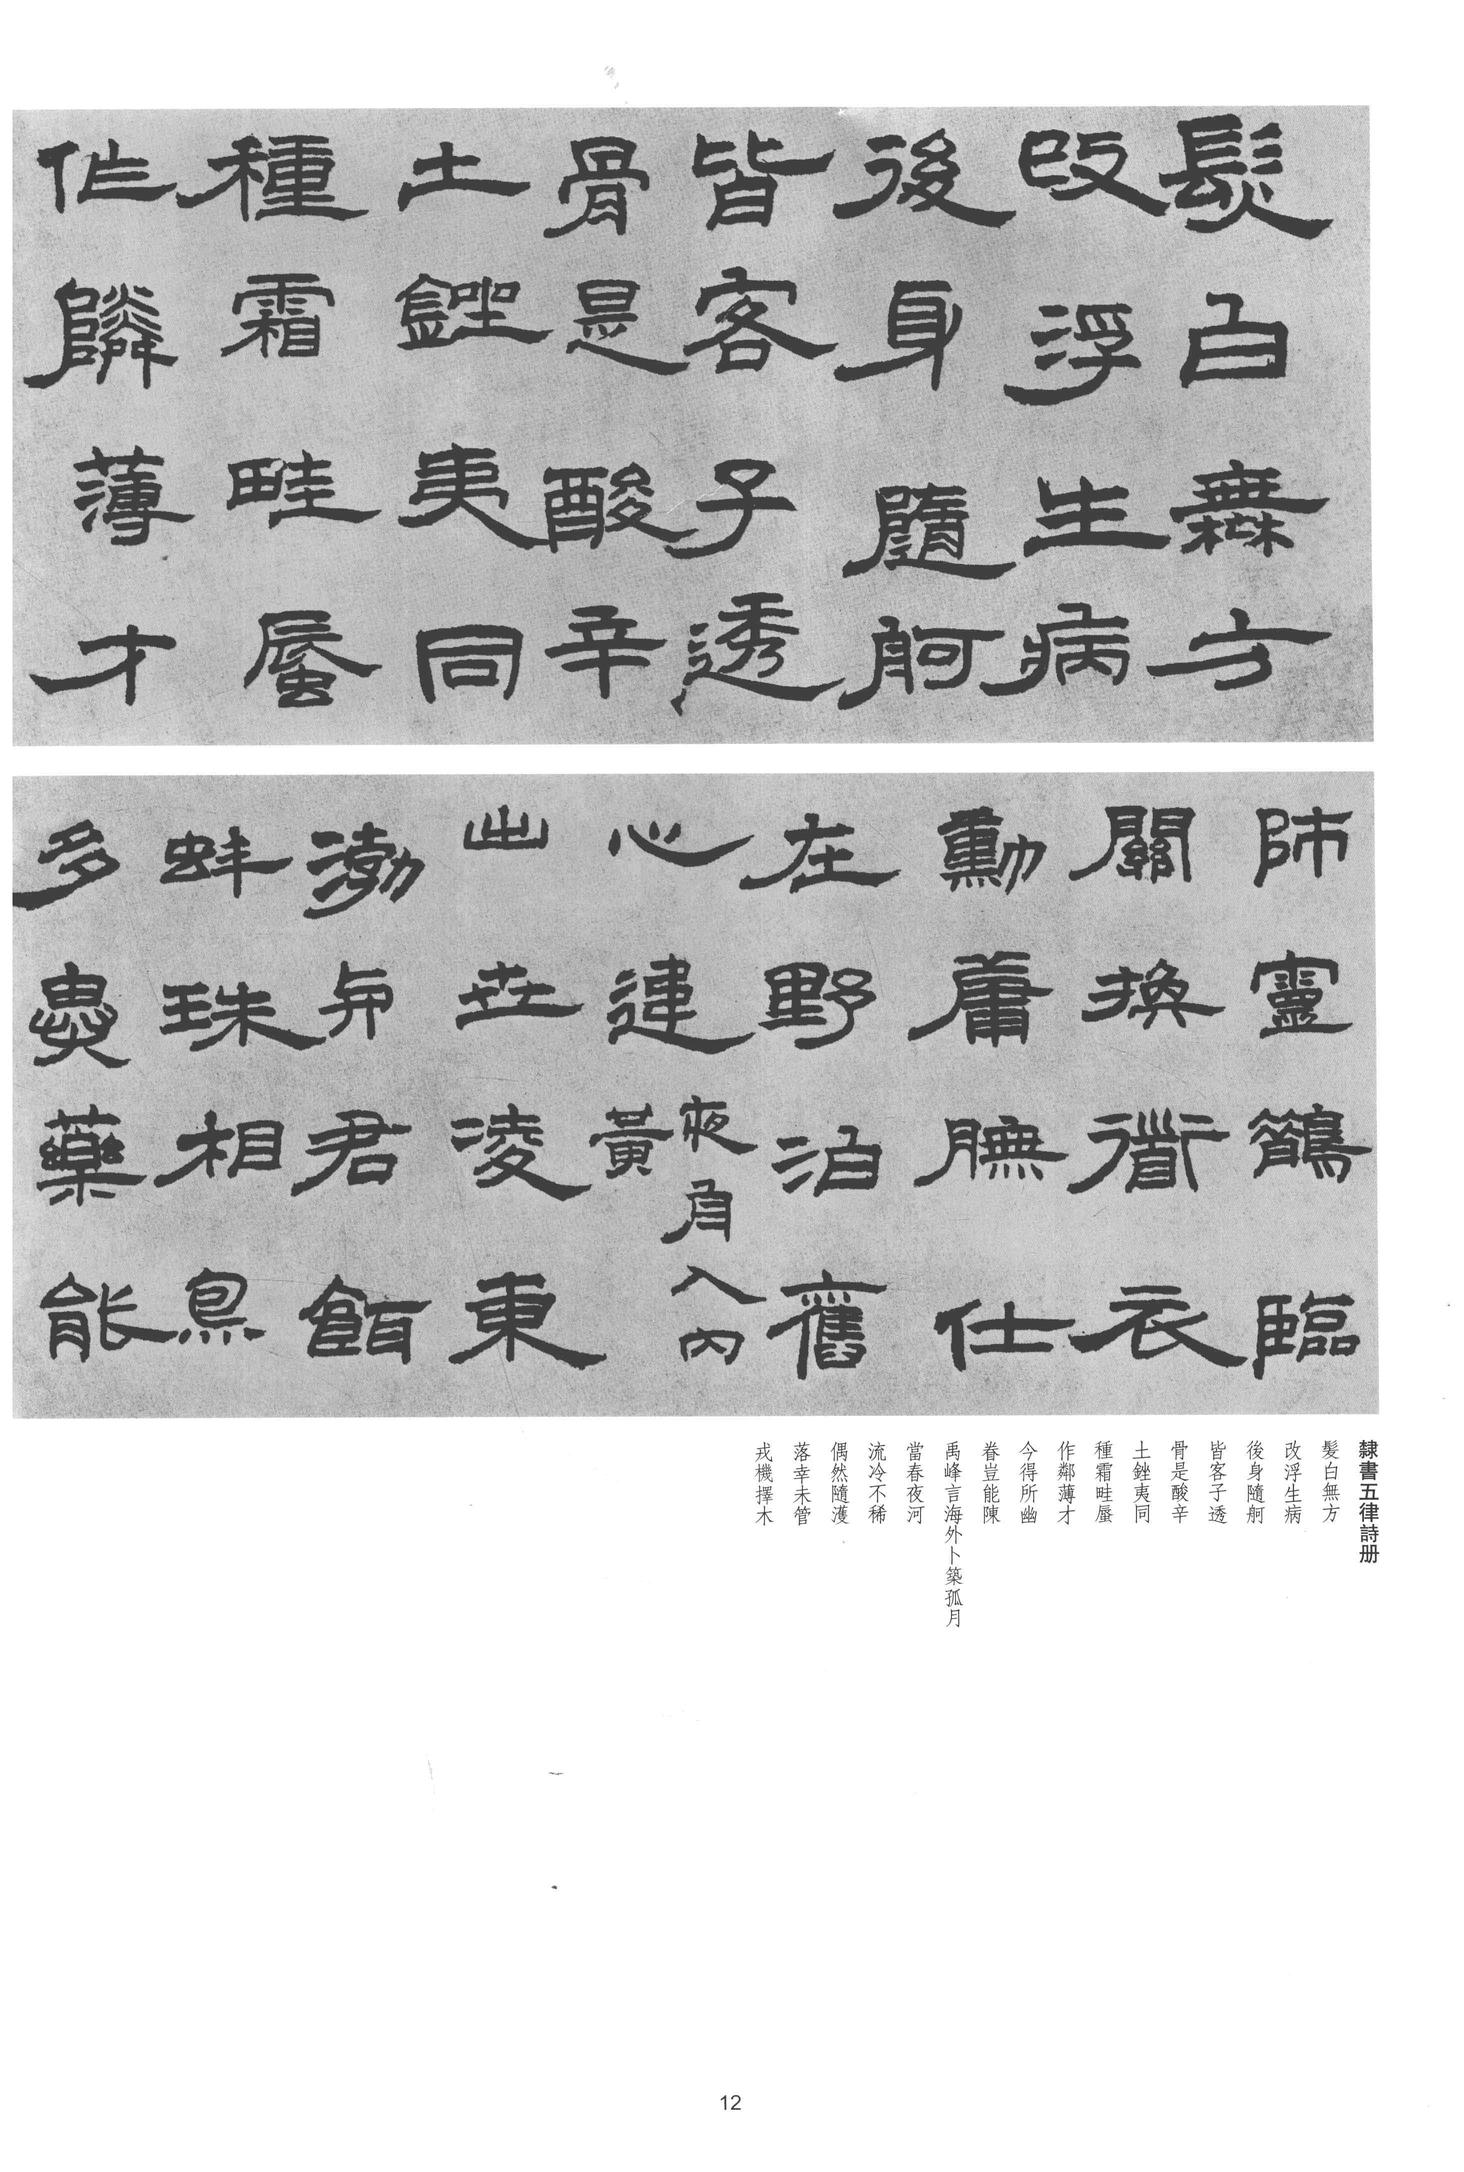 髮白無方
改浮生病
後身隨舸
皆客子透
骨是酸辛
土銼夷同
種霜畦蜃
作鄰薄才
師靈鶴臨
關換道衣
勳庸膴仕
在野泊舊
夜自入内
心建黃
此世凌東
渤與君飽
蚌珠相鳥
多患藥能
隸書五律詩册
髮白無方
改浮生病
後身隨舸
皆客子透
骨是酸辛
土銼夷同
種霜畦蜃
作鄰薄才
今得所幽
眷豈能陳
禹峰言海外卜築孤月
當春夜河
流冷不稀
偶然隨濩
落幸未管
戎機擇木
12